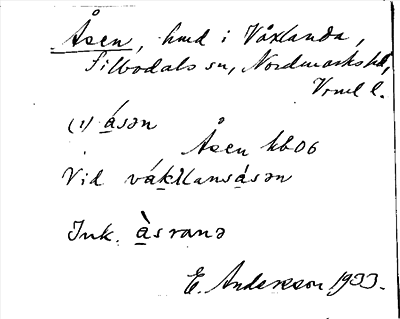 Åsen, hmd i Våxlanda,
Silbodals sn, Nordmarks hd,
Vrml l.
(1) ásən
Åsen hb 06
Vid vákllansásən
Ink. àsranə
E. Anderson 1933.